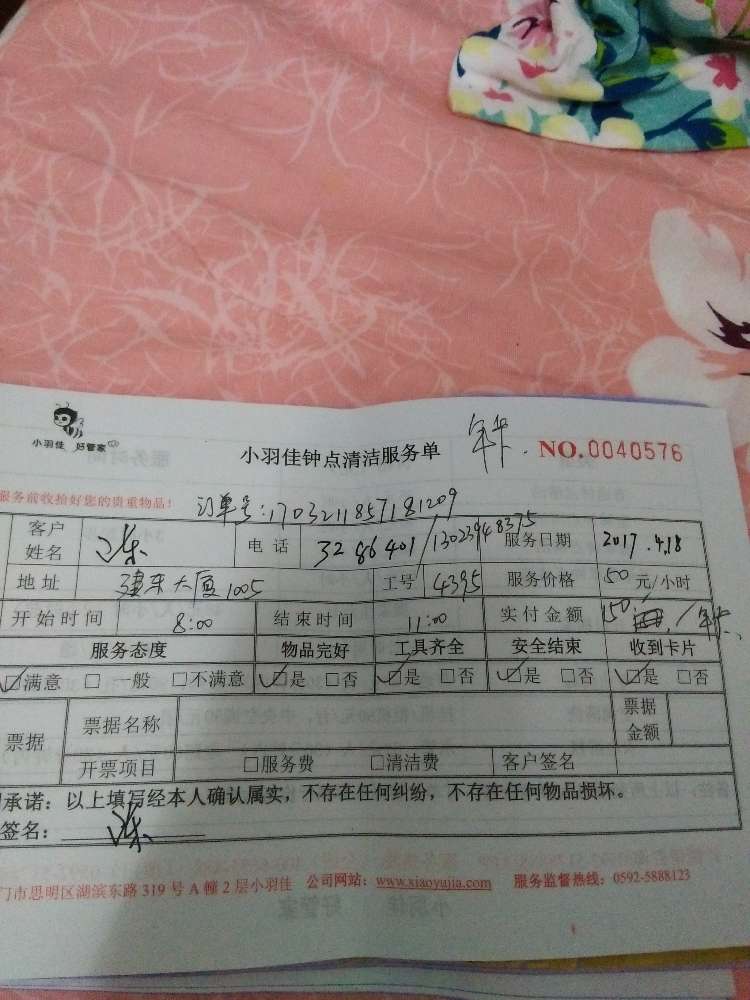 小羽佳 好管家
小羽佳钟点清洁服务单 年卡. NO.0040576
服务前收拾好您的贵重物品!
订单号:1703211857181209
客户姓名 电话 3286401/13023948375 服务日期 2017.4.18
地址 建东大厦1005 工号 4395 服务价格 50元/小时
开始时间 8:00 结束时间 11:00 实付金额 150 /年卡.
服务态度 物品完好 工具齐全 安全结束 收到卡片
☑满意 □一般 □不满意 ☑是 □否 ☑是 □否 ☑是 □否 ☑是 □否
票据 票据名称 票据金额
开票项目 □服务费 □清洁费 客户签名
承诺：以上填写经本人确认属实，不存在任何纠纷，不存在任何物品损坏。
签名：
门市思明区湖滨东路319号A幢2层小羽佳 公司网站：www.xiaoyujia.com 服务监督热线：0592-5888123